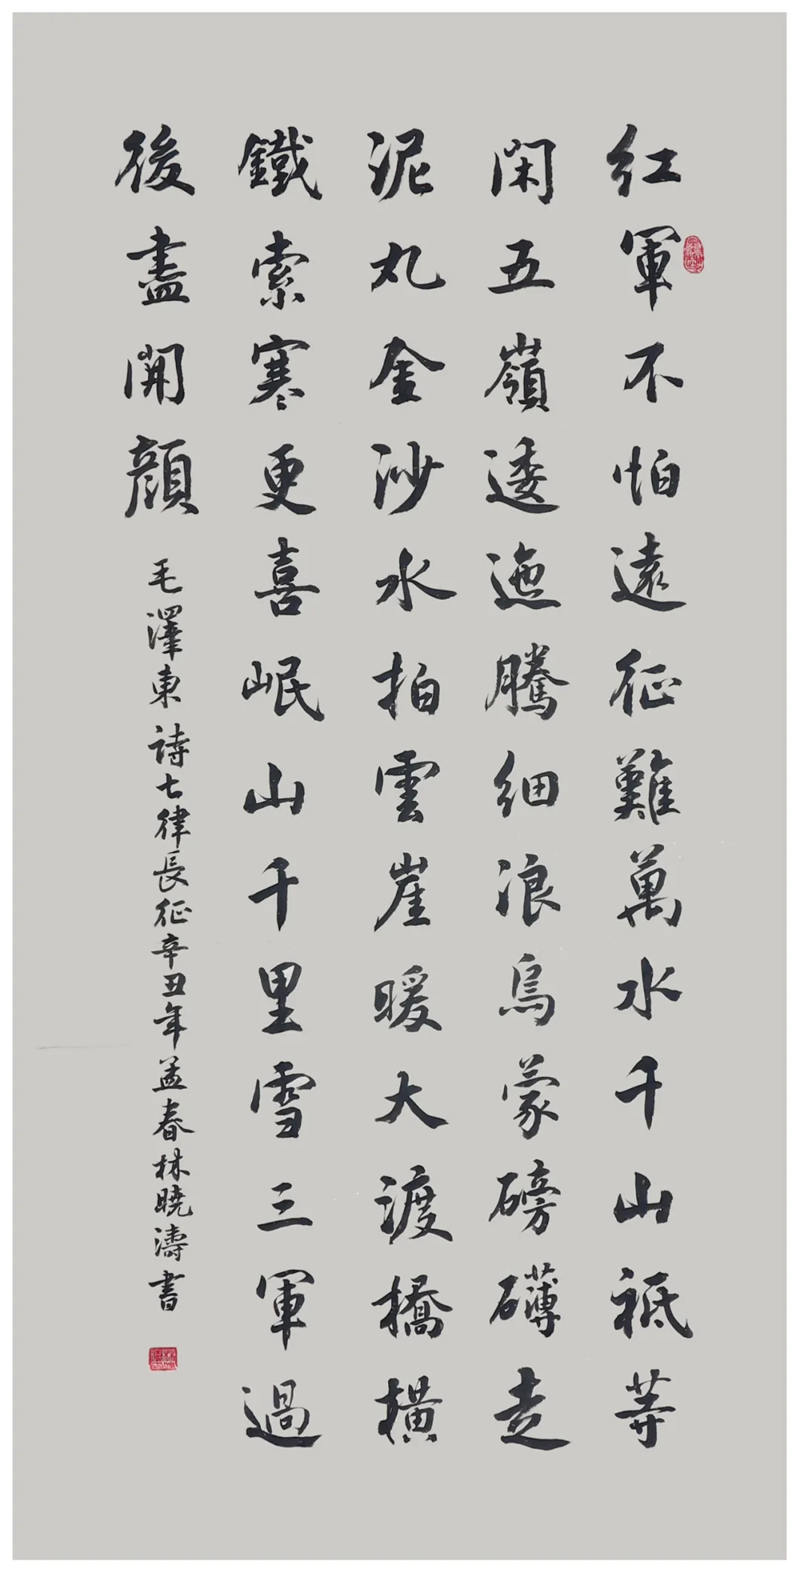 紅軍不怕遠征難萬水千山祗等
閑五嶺逶迤騰細浪烏蒙磅礴走
泥丸金沙水拍雲崖暖大渡橋橫
鐵索寒更喜岷山千里雪三軍過
後盡開顏
毛澤東詩七律長征辛丑年孟春林曉濤書